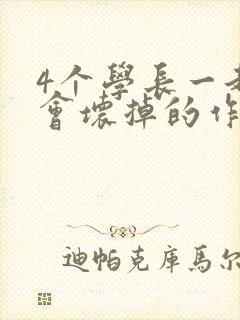 4个學長一
會壞掉的作
迪帕克庫馬尔